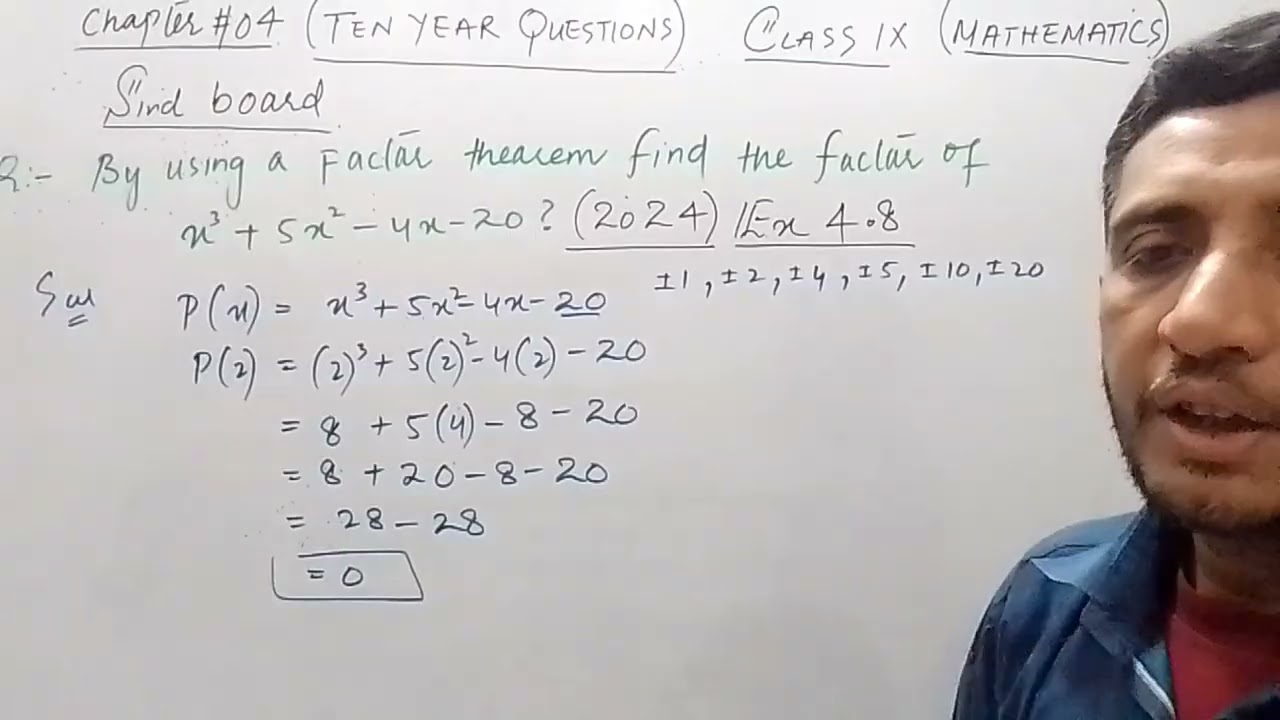 Chapter #04 (TEN YEAR QUESTIONS) CLASS IX (MATHEMATICS)
Sind board
Q:- By using a Factor thearem find the factor of
x³ + 5x² - 4x - 20? (2024) / Ex 4.8
±1, ±2, ±4, ±5, ±10, ±20
Sol P(x) = x³ + 5x² - 4x - 20
P(2) = (2)³ + 5(2)² - 4(2) - 20
= 8 + 5(4) - 8 - 20
= 8 + 20 - 8 - 20
= 28 - 28
= 0